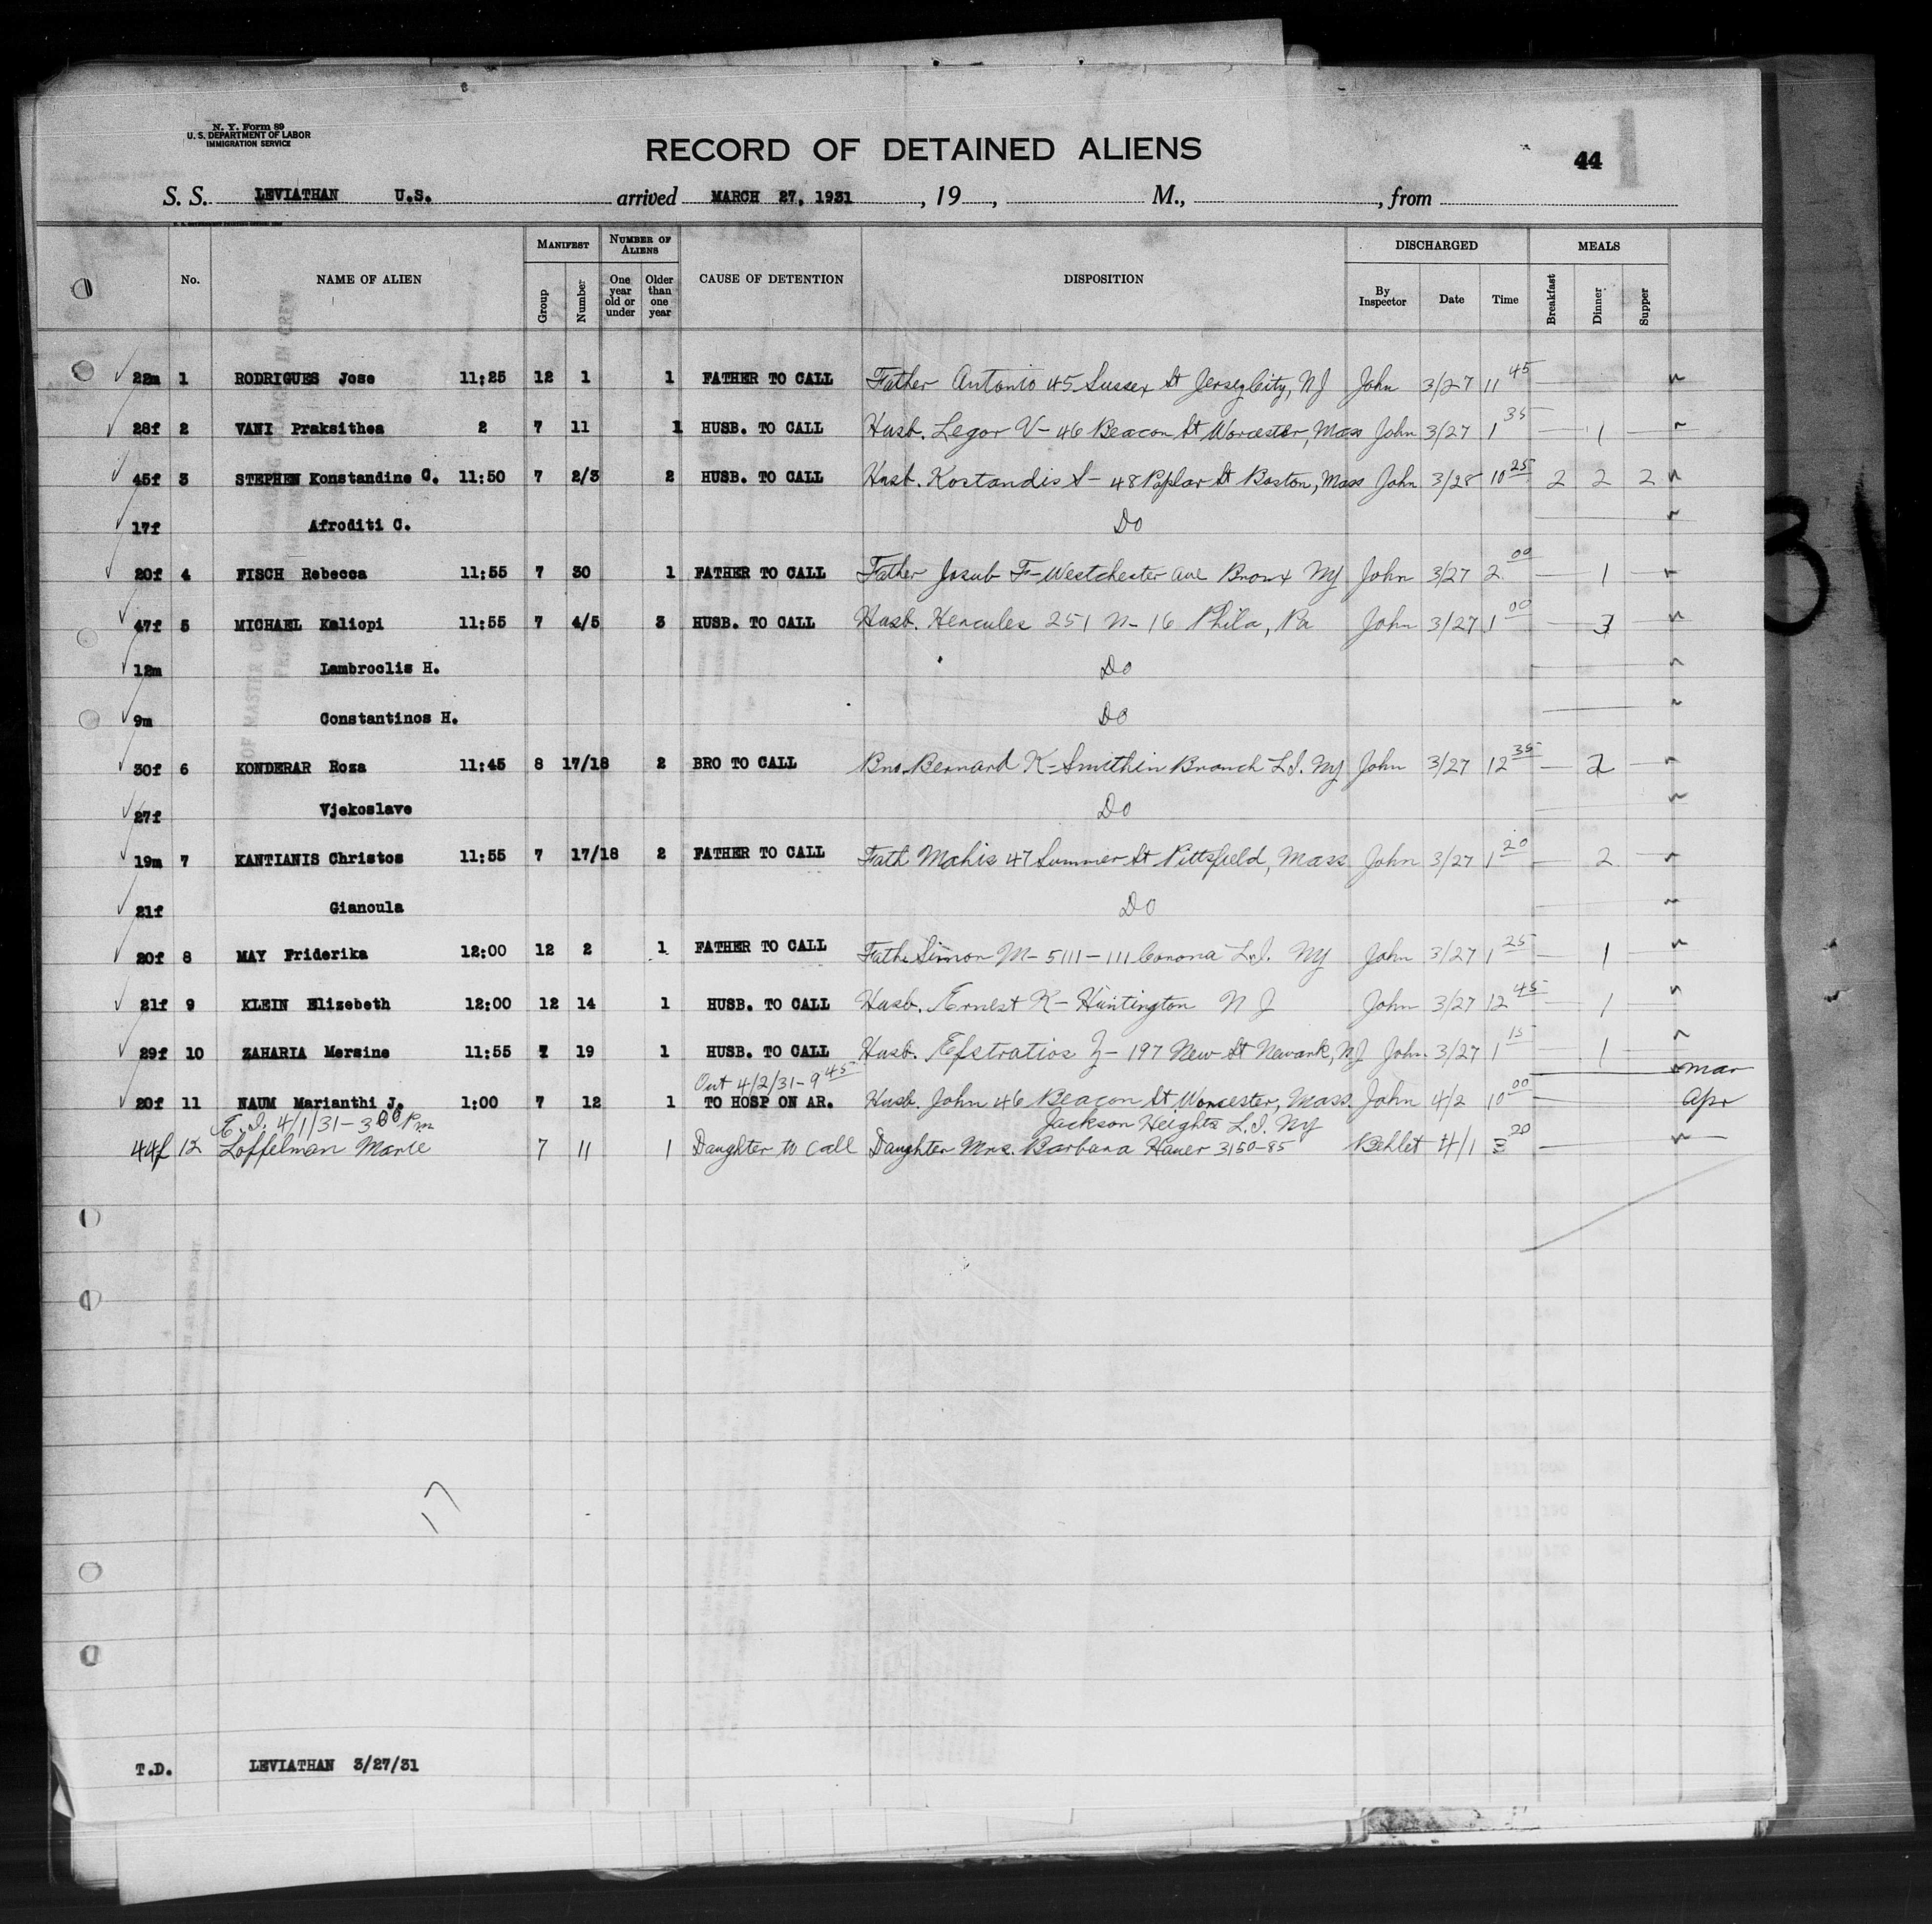 N. Y. Form 89
U. S. DEPARTMENT OF LABOR
IMMIGRATION SERVICE
RECORD OF DETAINED ALIENS
44
1
S. S. LEVIATHAN U.S. arrived MARCH 27, 1931, 19 , M., , from
No. NAME OF ALIEN MANIFEST Group Number NUMBER OF ALIENS One year old or under Older than one year CAUSE OF DETENTION DISPOSITION DISCHARGED By Inspector Date Time MEALS Breakfast Dinner Supper
22m 1 RODRIGUES Jose 11:25 12 1 1 FATHER TO CALL Father Antonio 45 Sussex St Jersey City, NJ John 3/27 11 45
28f 2 VANI Praksithea 2 7 11 1 HUSB. TO CALL Husb. Legor V- 46 Beacon St Worcester, Mass John 3/27 1 35 — 1 —
45f 3 STEPHEN Konstandine C. 11:50 7 2/3 2 HUSB. TO CALL Husb. Kostandis S- 48 Poplar St Boston, Mass John 3/28 10 25 2 2 2
17f Afroditi C. Do
20f 4 FISCH Rebecca 11:55 7 30 1 FATHER TO CALL Father Josub F- Westchester Ave Bronx NY John 3/27 2 00 — 1 —
47f 5 MICHAEL Kaliopi 11:55 7 4/5 3 HUSB. TO CALL Husb. Hercules 251 N- 16 Phila, Pa John 3/27 1 00 — 3 —
12m Lambroclis H. Do
9m Constantinos H. Do
30f 6 KONDERAR Roza 11:45 8 17/18 2 BRO TO CALL Bro. Bernard K- Smithin Branch L.I. NY John 3/27 12 35 — 2 —
27f Vjekoslave Do
19m 7 KANTIANIS Christos 11:55 7 17/18 2 FATHER TO CALL Fath Mahis 47 Summer St Pittsfield, Mass John 3/27 1 20 — 2 —
21f Gianoula Do
20f 8 MAY Friderika 12:00 12 2 1 FATHER TO CALL Fath Simon M- 5111-111 Corona L.I. NY John 3/27 1 25 — 1 —
21f 9 KLEIN Elizebeth 12:00 12 14 1 HUSB. TO CALL Husb. Ernest K- Huntington N J John 3/27 12 45 — 1 —
29f 10 ZAHARIA Mersine 11:55 7 19 1 HUSB. TO CALL Husb. Efstratios Z- 197 New St Newark, NJ John 3/27 1 15 — 1 —
Out 4/2/31-9 45 Mar
20f 11 NAUM Marianthi J. 1:00 7 12 1 TO HOSP ON AR. Husb. John 46 Beacon St Worcester, Mass. John 4/2 10 00 Apr
E.I. 4/1/31-3 00 Pm Jackson Heights L.I. NY
44f 12 Loffelman Marie 7 11 1 Daughter to call Daughter Mrs. Barbara Hauer 3150-85 4/1 3 20
17
T.D. LEVIATHAN 3/27/31
3